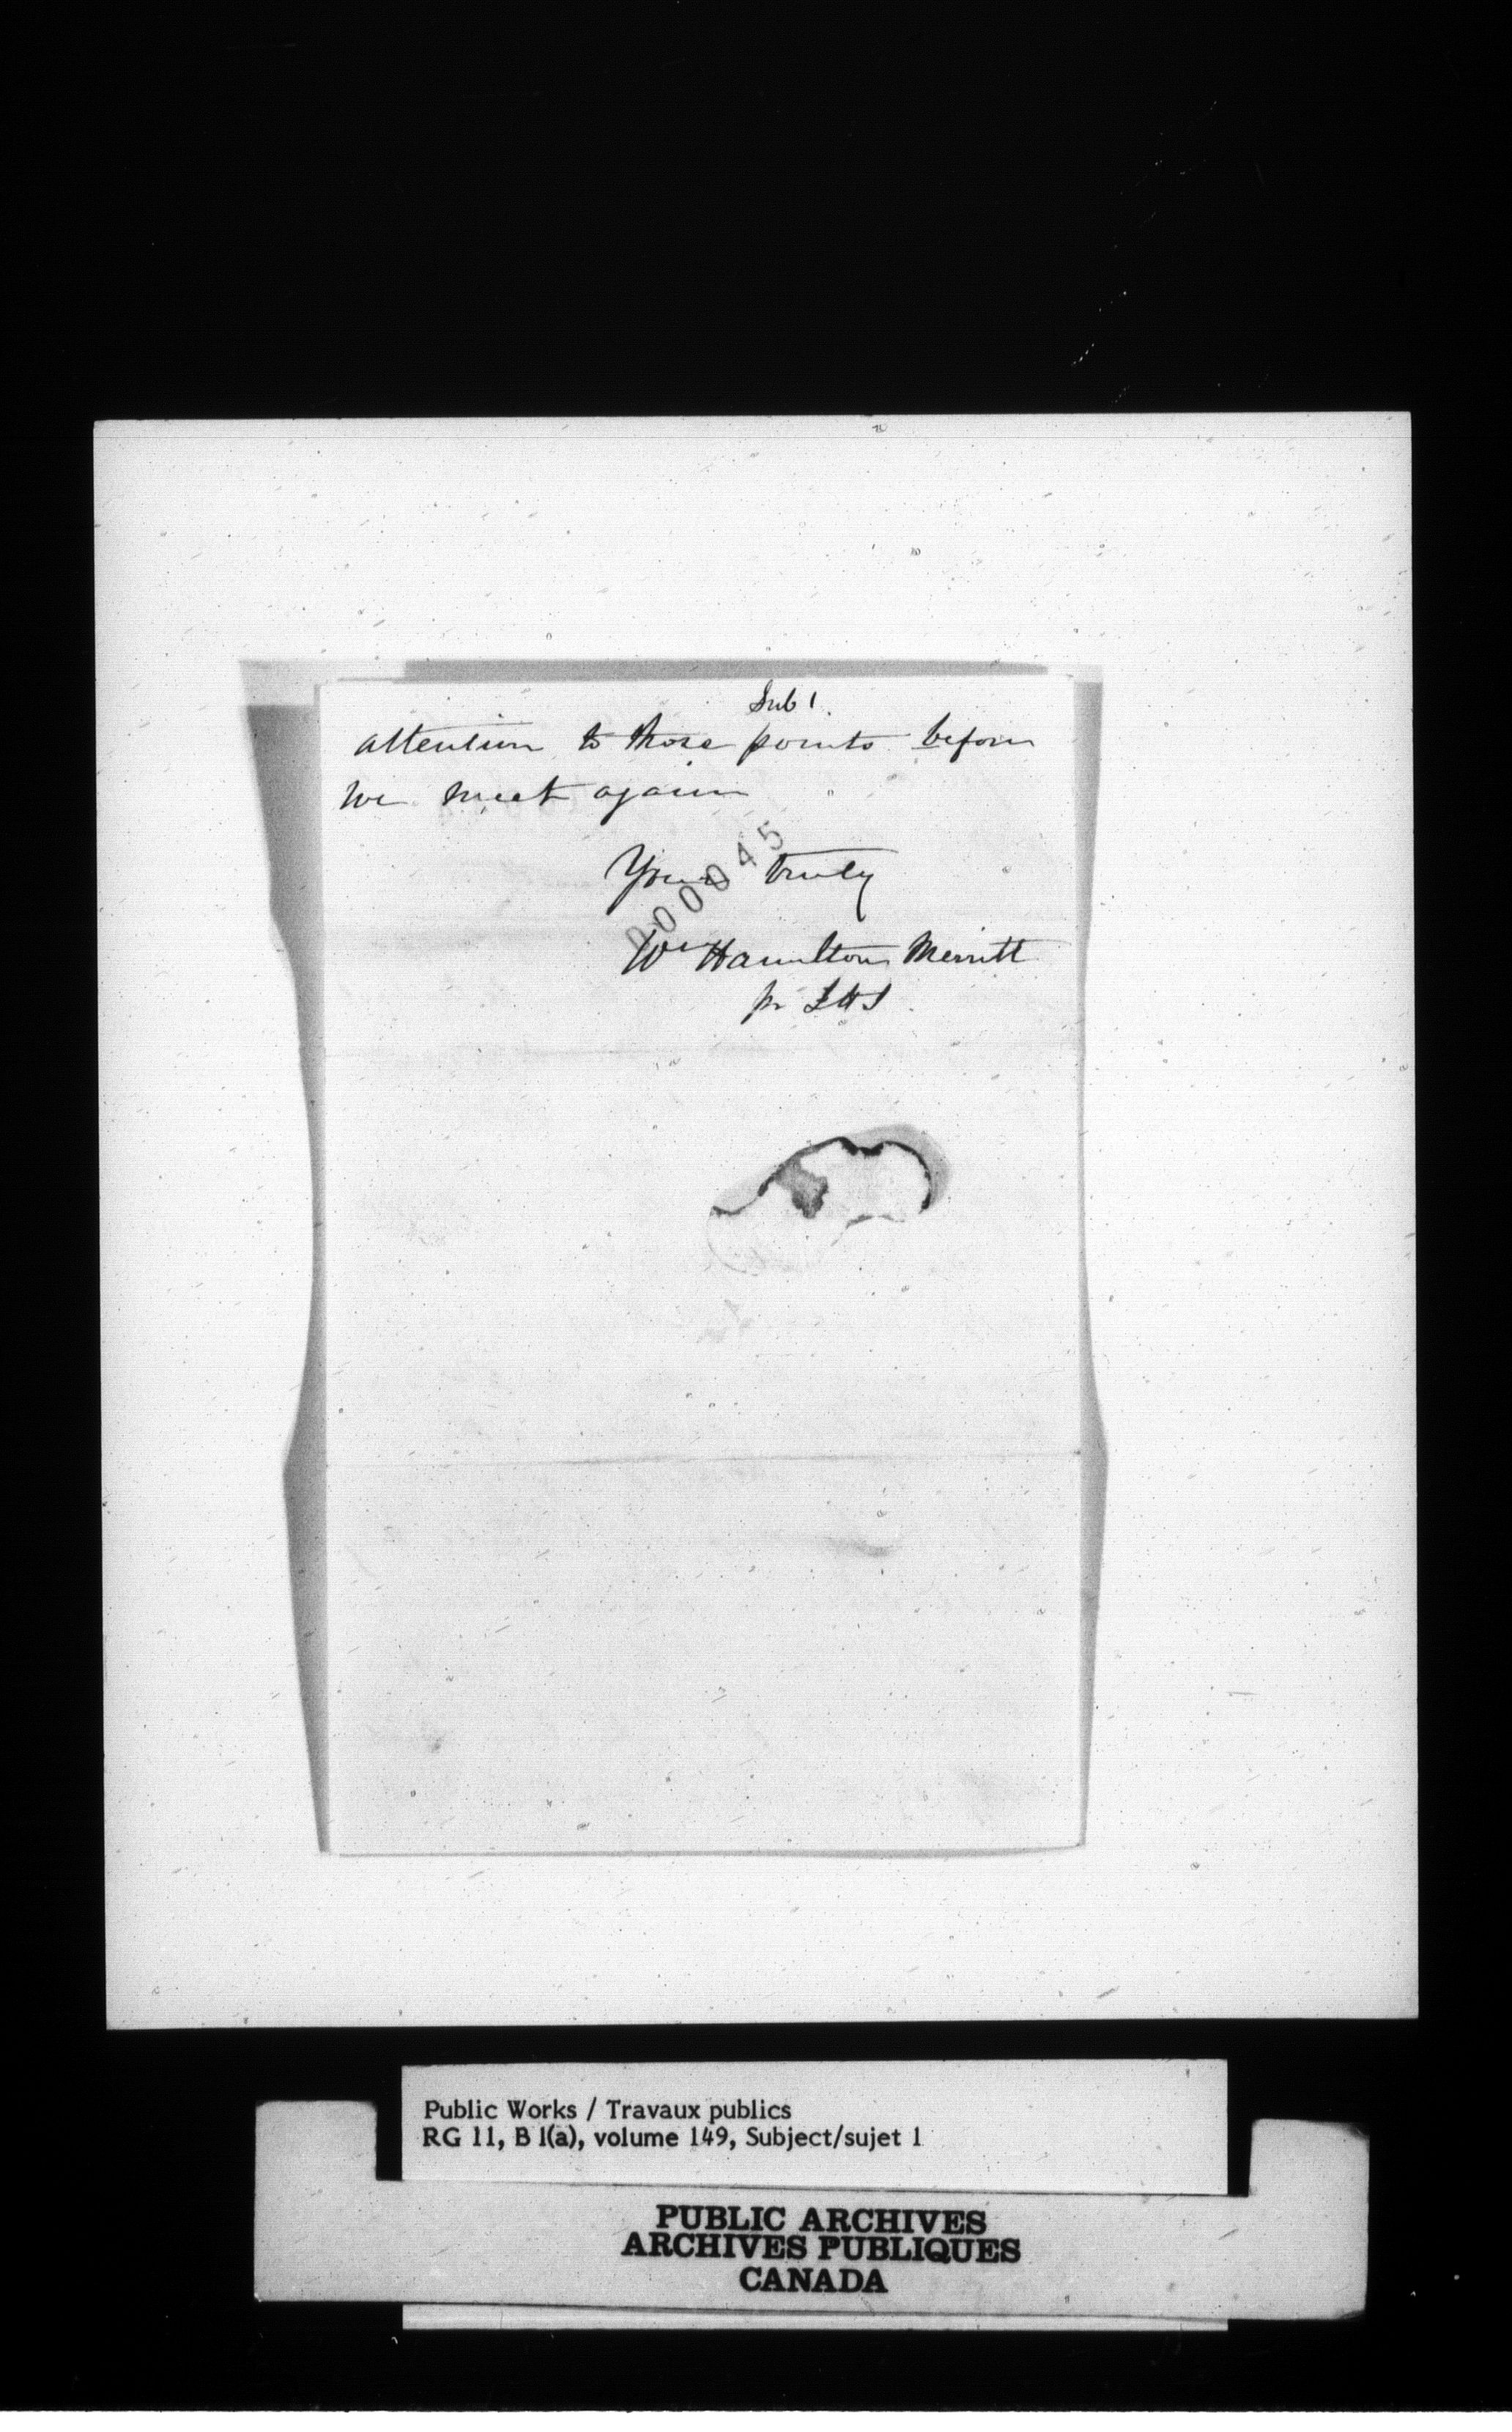 Sub 1.
attention to those points before
we meet again
Yours truly
000045
Wm Hamilton Merritt
pr
Public Works / Travaux publics
RG 11, B 1(a), volume 149, Subject/sujet 1
PUBLIC ARCHIVES
ARCHIVES PUBLIQUES
CANADA